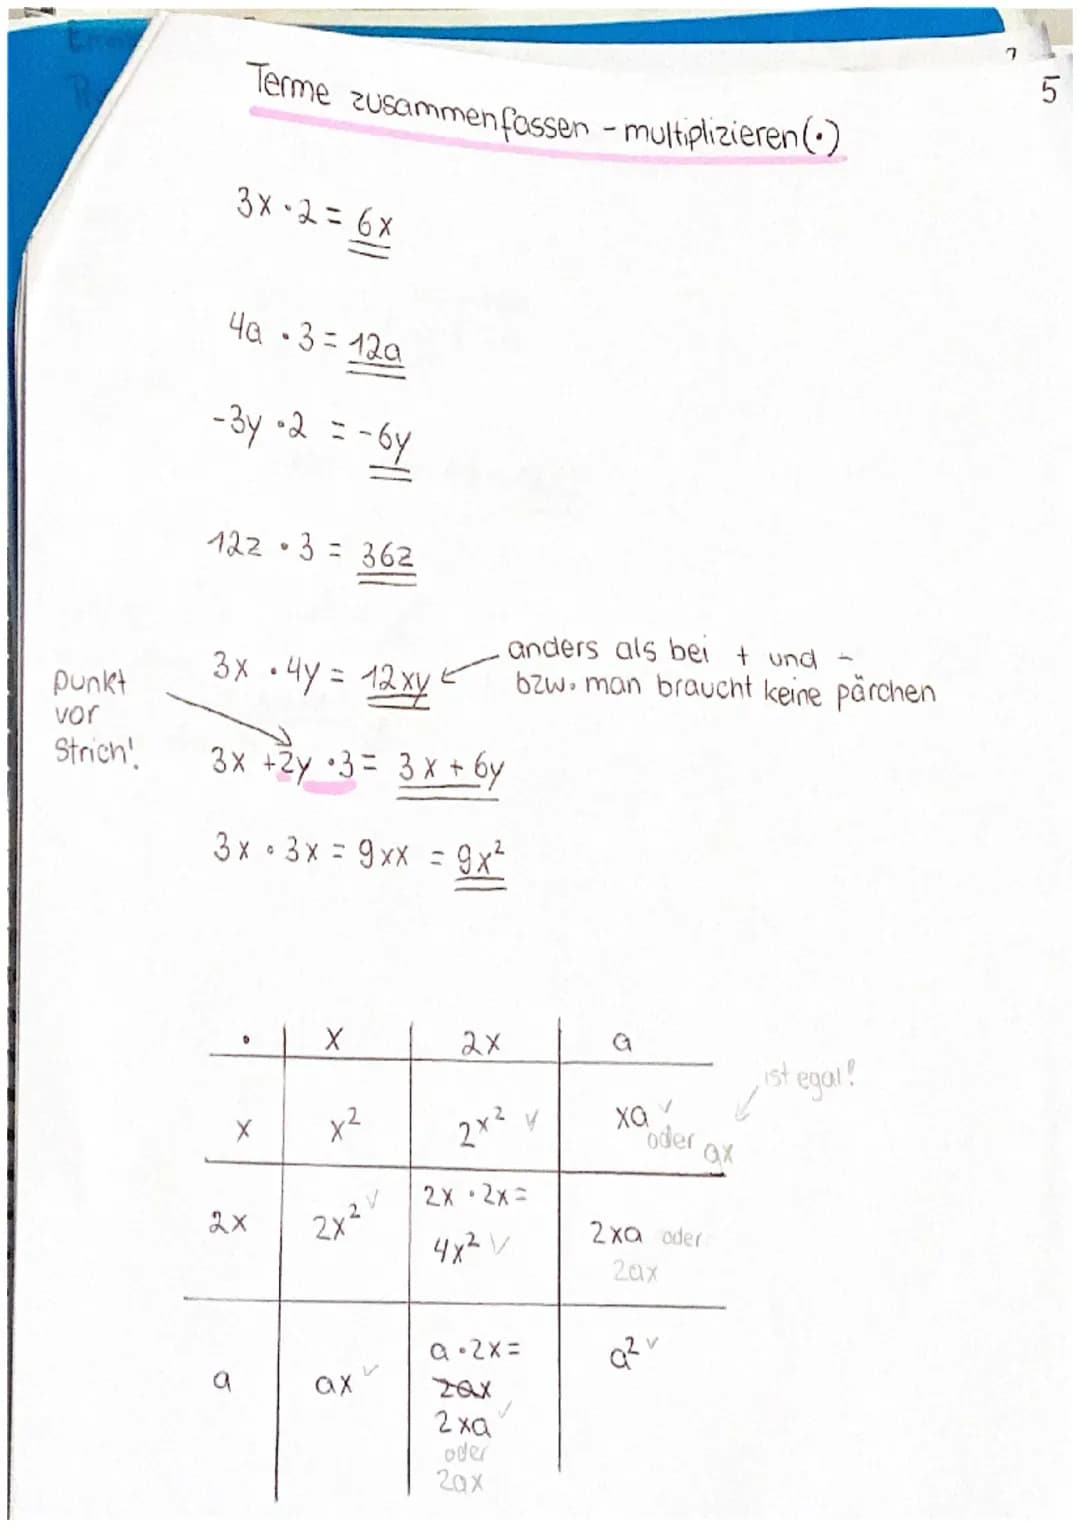 5
Terme zusammenfassen - multiplizieren (·)
3x · 2 = 6x
4a · 3 = 12a
-3y · 2 = -6y
12z · 3 = 36z
3x · 4y = 12xy
anders als bei + und -
bzw. man braucht keine pärchen
punkt
vor
Strich!
3x + 2y · 3 = 3x + 6y
3x · 3x = 9xx = 9x²
· x 2x a
ist egal!
x x² 2x² ✓ xa ✓ oder ax
2x 2x² ✓ 2x · 2x = 4x² ✓ 2xa oder 2ax
a ax ✓ a · 2x = a² ✓
2ax
2xa ✓
oder
2ax